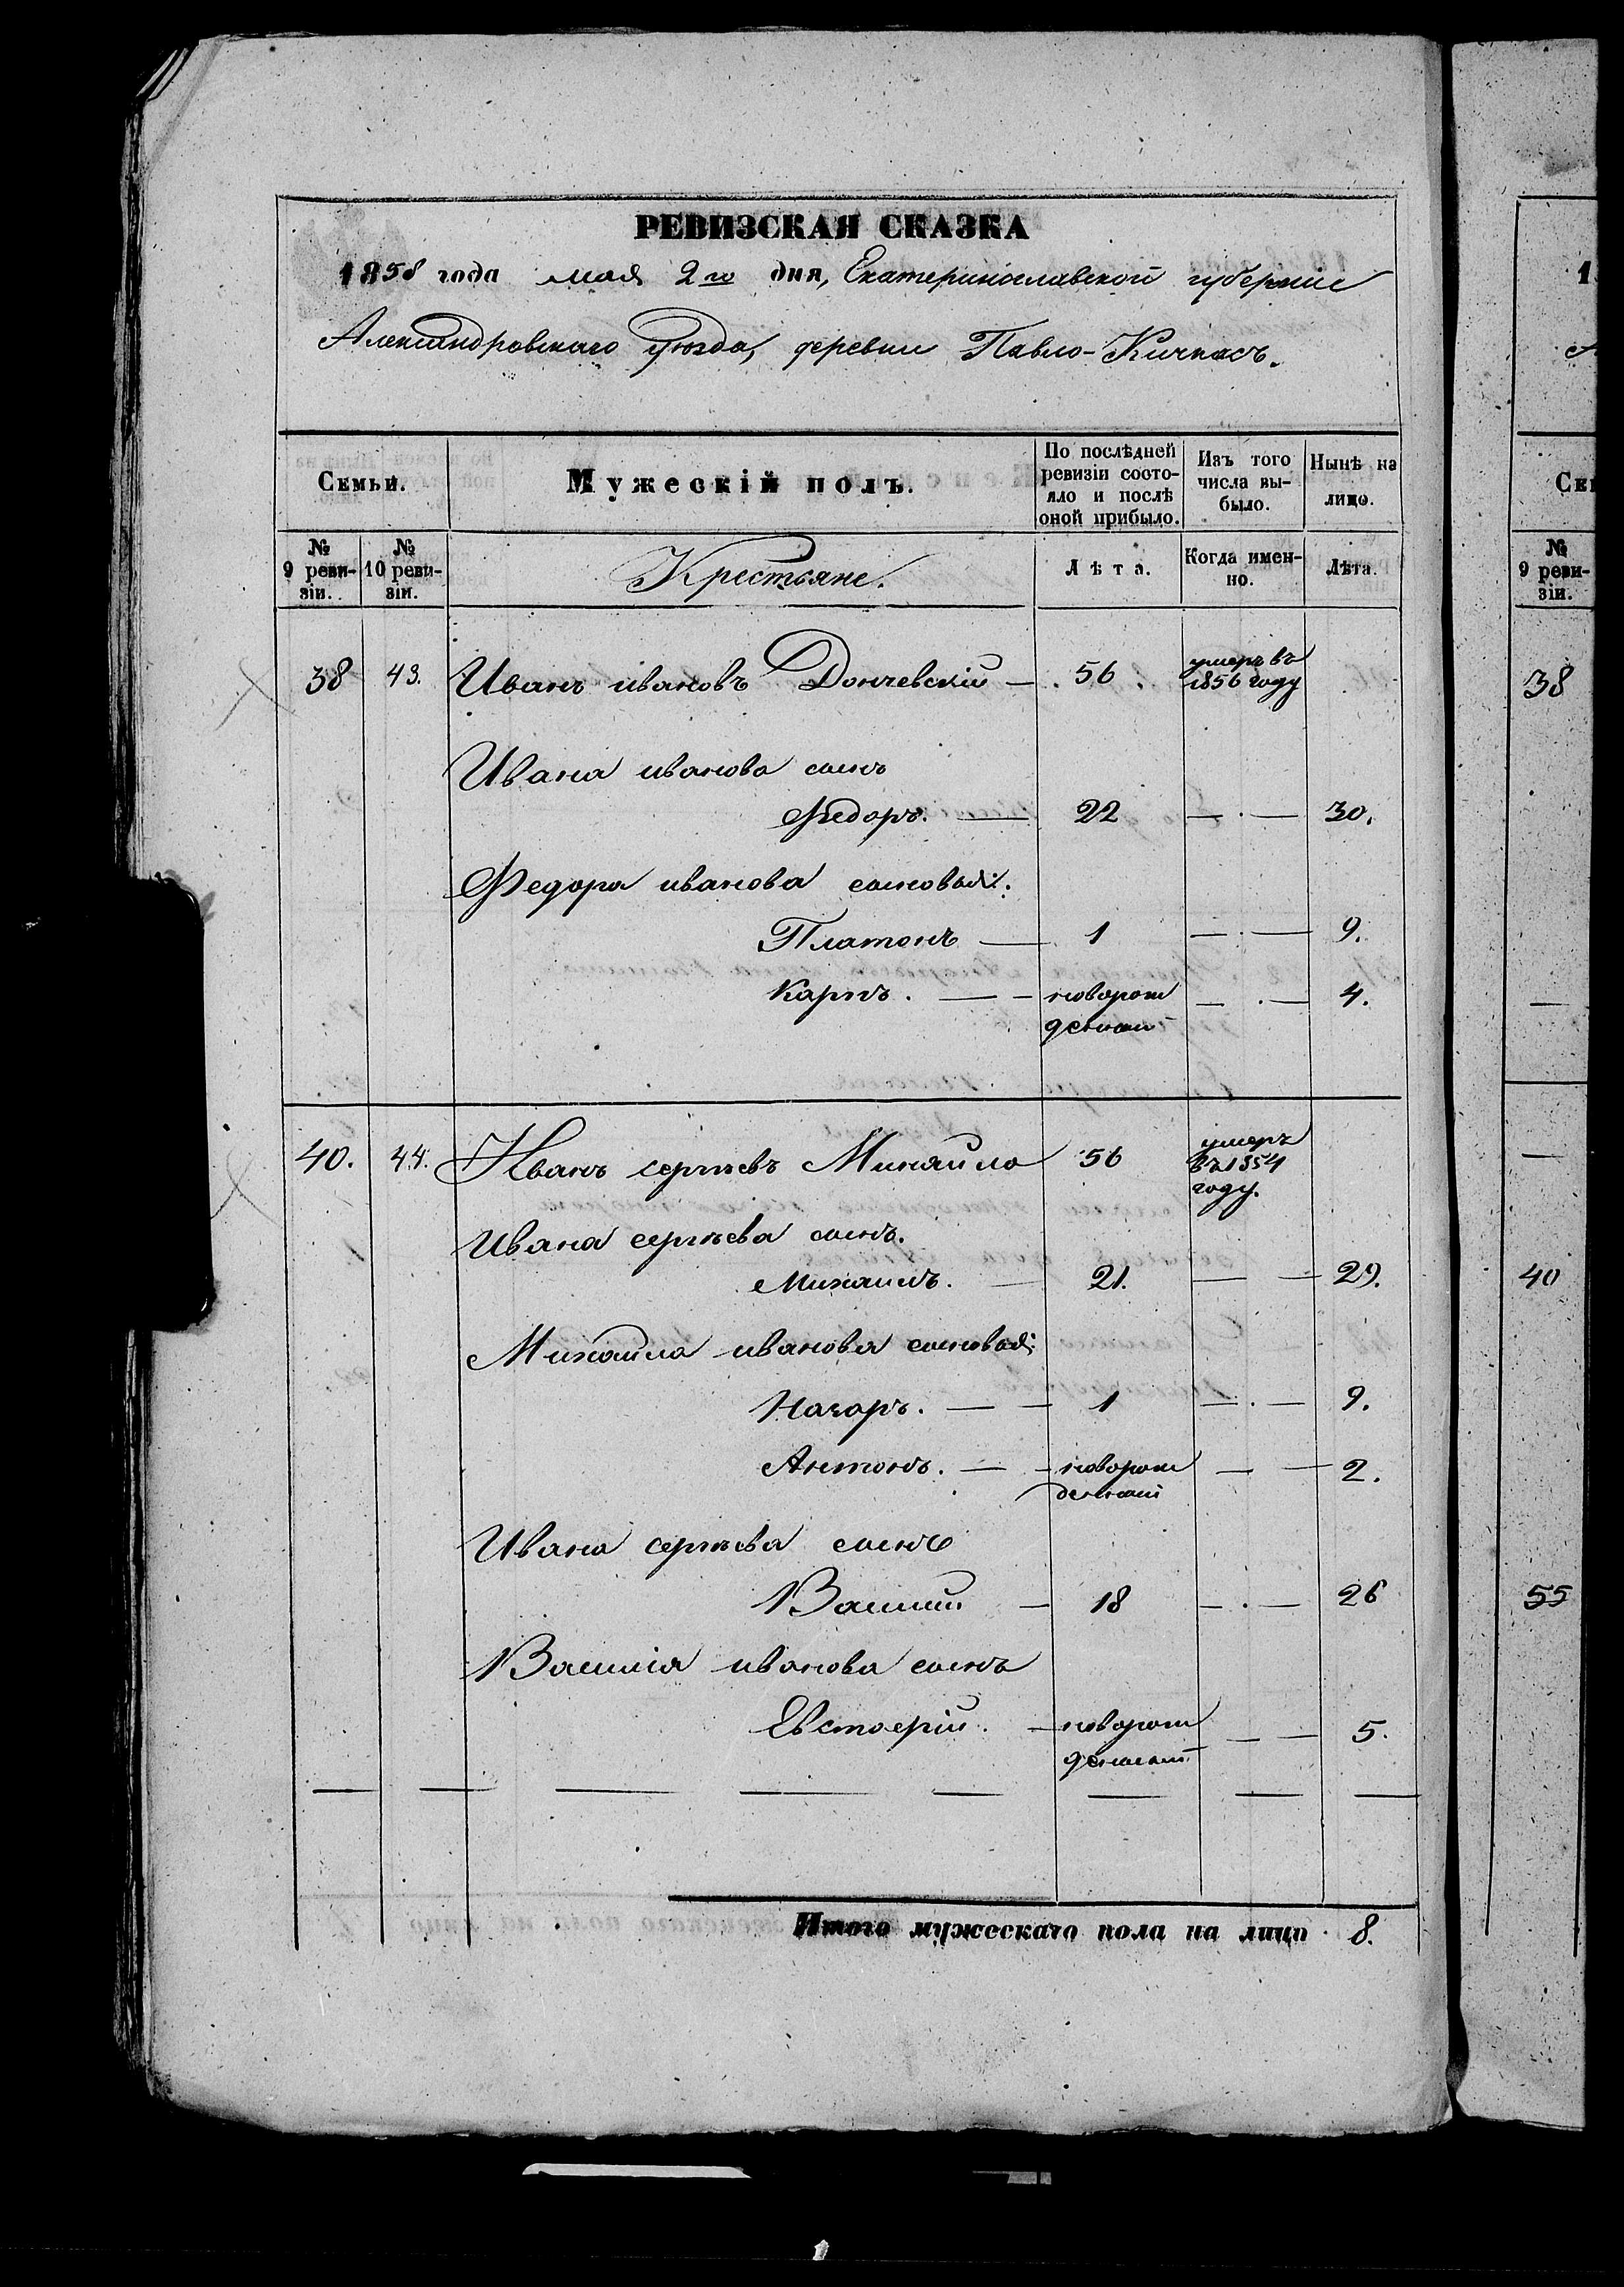 РЕВИЗСКАЯ СКАЗКА
1858 года мая 2го дня, Екатеринославской губернiи
Александровскаго уѣзда, деревни Павло-Кичкасъ.
Семьи.
Мужескій полъ.
По послѣдней ревизіи состо-
яло и послѣ
оной прибыло.
Изъ того
числа вы-
было.
Нынѣ на
лицо.
№
9 реви-
зіи.
№
10 реви-
зіи.
Крестьяне.
Лѣта.
Когда имен-
но.
Лѣта.
38 43. Иванъ ивановъ Дончевскій — 56 умеръ въ
1856 году
Ивана иванова сынъ
Федоръ. — 22 — . — 30.
Федора иванова сыновья:
Платонъ — 1 — . — 9.
Карпъ. — — новорож — . — 4.
денный
40. 44. Иванъ сергѣевъ Михайло 56 умеръ
въ 1854
году.
Ивана сергѣева сынъ.
Михаилъ. — 21. — — 29.
Михаила иванова сыновья:
Назаръ. — — 1 — . — 9.
Антонъ. — — новорож — — 2.
денный
Ивана сергѣева сынъ
Василій — 18 — . — 26
Василія иванова сынъ
— новорож — — 5.
денный
Итого мужескаго пола на лицо 8.
1
Се
№
9 реви-
зіи.
38
40
55